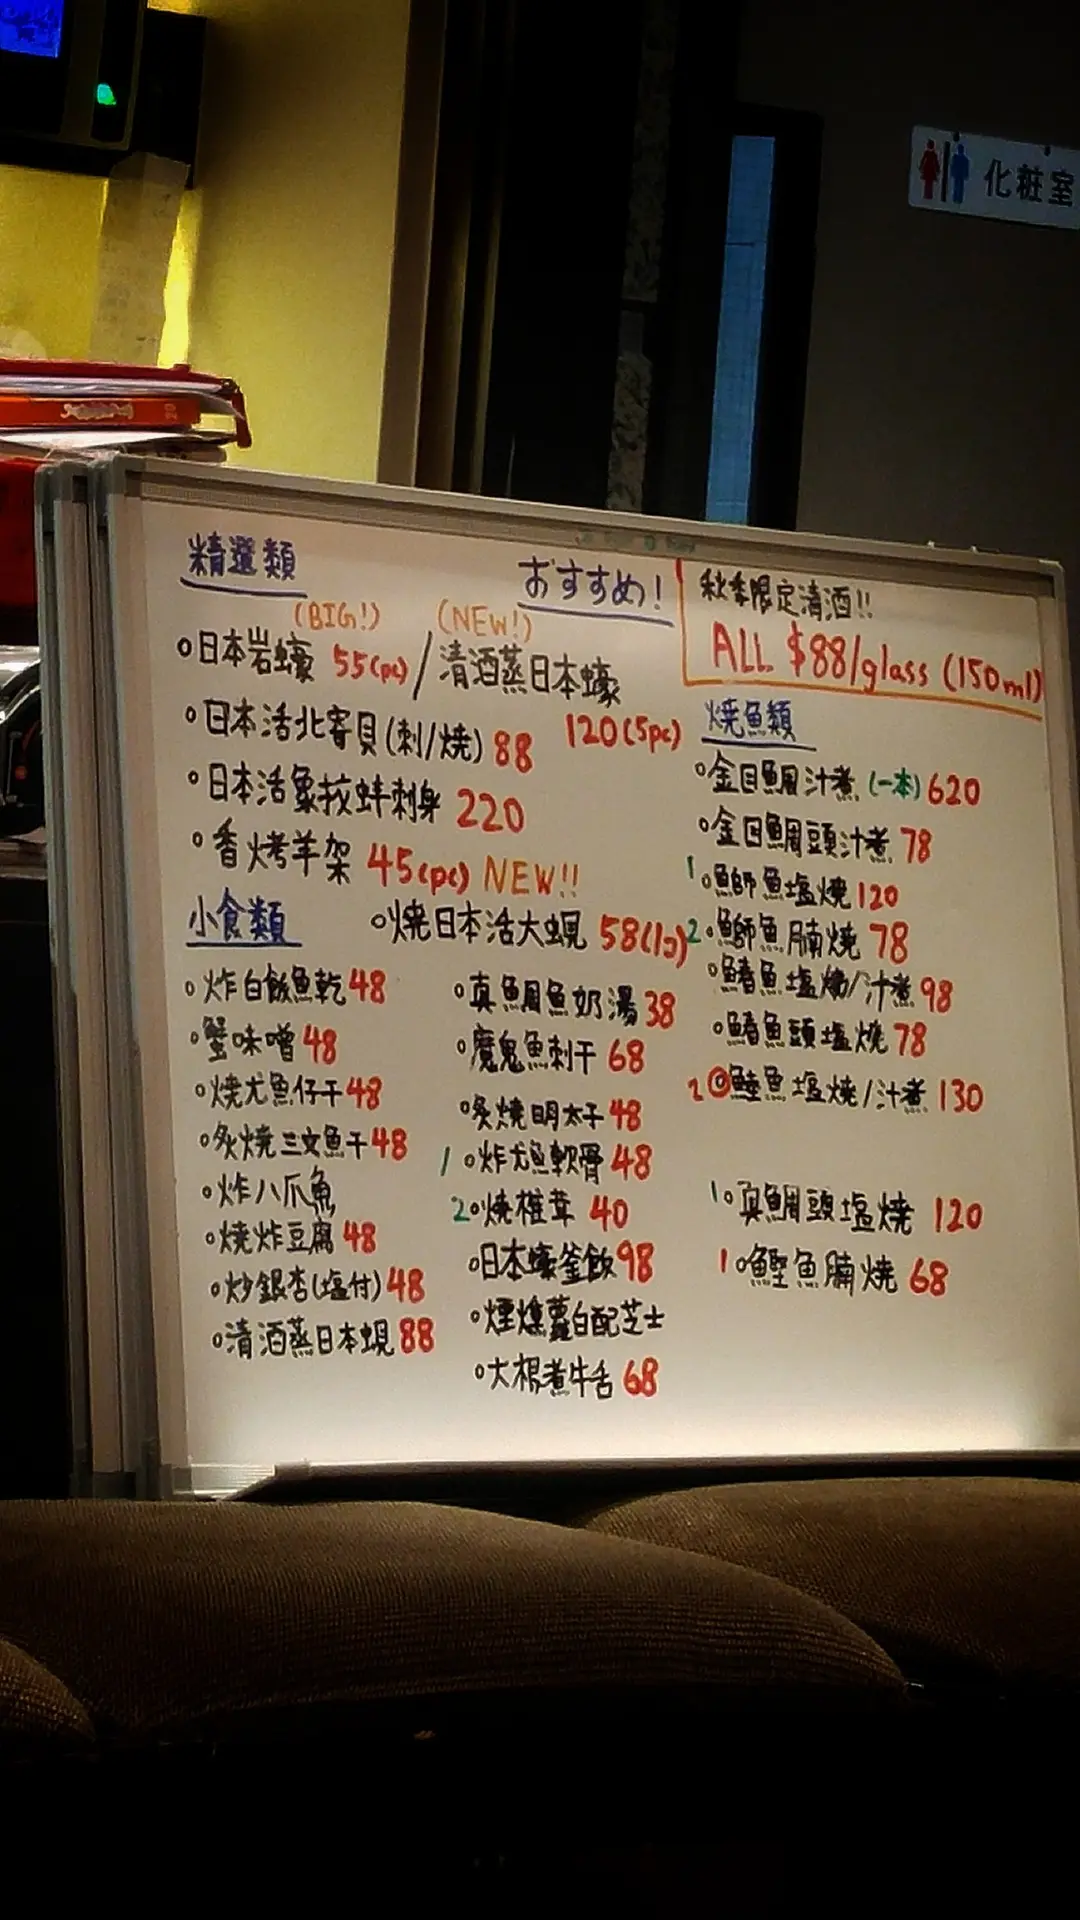 化粧室
精選類
おすすめ!
秋季限定清酒!!
ALL $88/glass (150ml)
(BIG!) (NEW!)
日本岩蠔 55(pc) / 清酒蒸日本蠔 120(5pc)
日本活北寄貝(刺/燒) 88
日本活象拔蚌刺身 220
香烤羊架 45(pc) NEW!!
燒日本活大蜆 58(1)
小食類
炸白飯魚乾 48
蟹味噌 48
燒尤魚仔干 48
炙燒三文魚干 48
炸八爪魚
燒炸豆腐 48
炒銀杏(塩付) 48
清酒蒸日本蜆 88
真鯛魚奶湯 38
魔鬼魚刺干 68
炙燒明太子 48
1 炸尤魚軟骨 48
2 燒椎茸 40
日本蠔釜飯 98
煙燻蘿白配芝士
大根煮牛舌 68
燒魚類
金目鯛汁煮 (一本) 620
金目鯛頭汁煮 78
1 鰤魚塩燒 120
2 鰤魚腩燒 78
鰆魚塩燒/汁煮 98
鰆魚頭塩燒 78
2 鯥魚塩燒/汁煮 130
1 真鯛頭塩燒 120
1 鰹魚腩燒 68